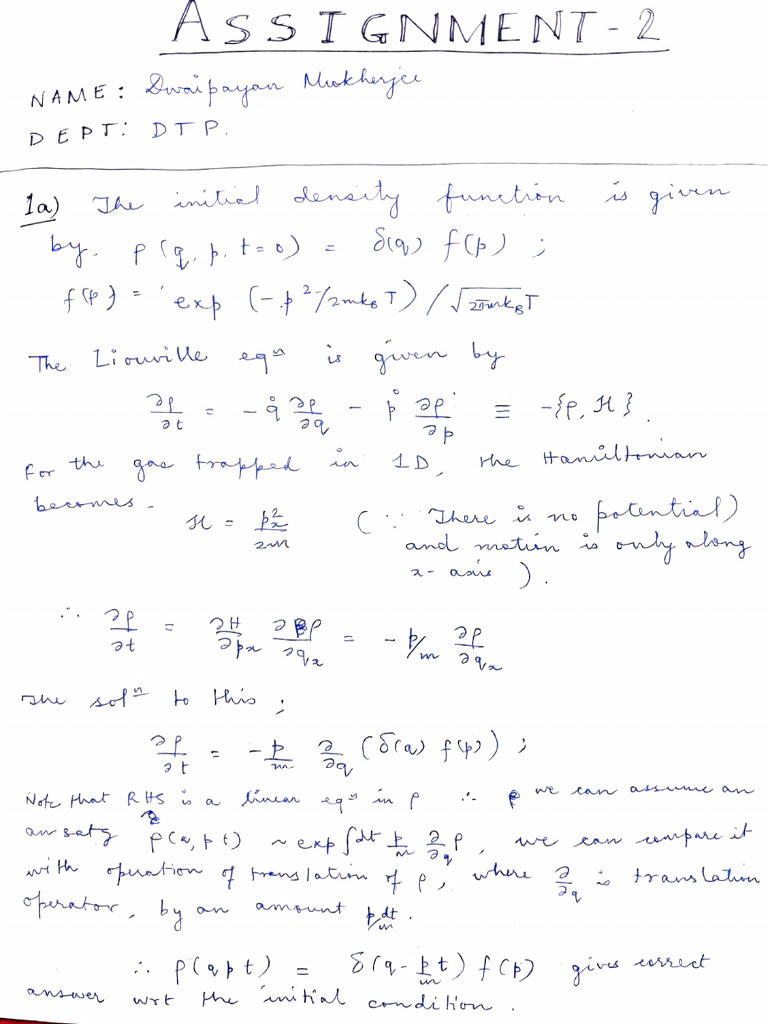 ASSIGNMENT-2
NAME: Dwaipayan Mukherjee
DEPT: DTP.
1a) The initial density function is given
by. ρ(q, p, t=0) = δ(q) f(p) ;
f(p) = exp (-p²/2mk_BT) / √2πmk_BT
The Liouville eqⁿ is given by
∂ρ/∂t = - q̊ ∂ρ/∂q - p̊ ∂ρ/∂p ≡ -{ρ, H}.
For the gas trapped in 1D, the Hamiltonian
becomes -
H = pₓ²/2m (∵ There is no potential)
and motion is only along
x-axis ).
∴ ∂ρ/∂t = ∂H/∂pₓ ∂ρ/∂qₓ = - p/m ∂ρ/∂qₓ
The solⁿ to this ;
∂ρ/∂t = - p/m ∂/∂q (δ(q) f(p)) ;
Note that RHS is a linear eqⁿ in ρ ∴ we can assume an
ansatz ρ(q, p t) ~ exp ∫dt p/m ∂/∂q ρ, we can compare it
with operation of translation of ρ, where ∂/∂q is translation
operator, by an amount p/m dt.
∴ ρ(q p t) = δ(q - p/m t) f(p) gives correct
answer wrt the initial condition.